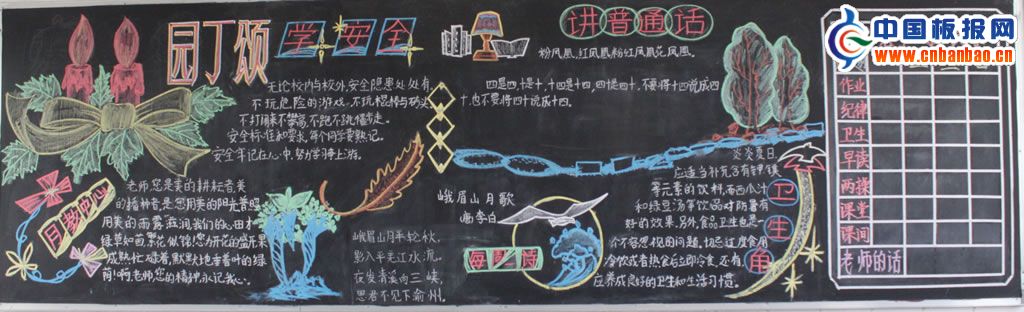 园丁颂
学安全
无论校内与校外,安全隐患处处有,
不玩危险的游戏,不玩棍棒与砖头
不打闹来不攀高,不跑不跳慢步走。
安全标准和要求,每个同学要熟记。
安全牢记在心中,努力学习争上游。
讲普通话
粉凤凰,红凤凰,粉红凤凰花凤凰
四是四,十是十,十四是十四,四十是四十,不要将十四说成四
十,也不要将四十说成十四。
月教中心
老师,您是美的耕耘者,美
的播种者,是您用美的阳光普照,
用美的雨露滋润我们的心田才
绿草如茵,繁花似锦!您为花的盛开果
成熟忙碌着,默默地垂着叶的绿
荫!啊,老师,您的精神,永记我心。
峨眉山月歌
唐李白
峨眉山月半轮秋,
影入平羌江水流。
夜发清溪向三峡,
思君不见下渝州。
每周一诗
卫生角
炎炎夏日
应适当补充含有钾镁
等元素的饮料,而西瓜汁
和绿豆汤等饮品对防暑有
好的效果。另外,食品卫生也是一
个不容忽视的问题,切忌过度食用
冷饮或者热食后立即冷食,还有,
应养成良好的卫生和生活习惯。
作业
纪律
卫生
早读
两操
课堂
课间
老师的话
中国板报网
www.cnbanbao.cn